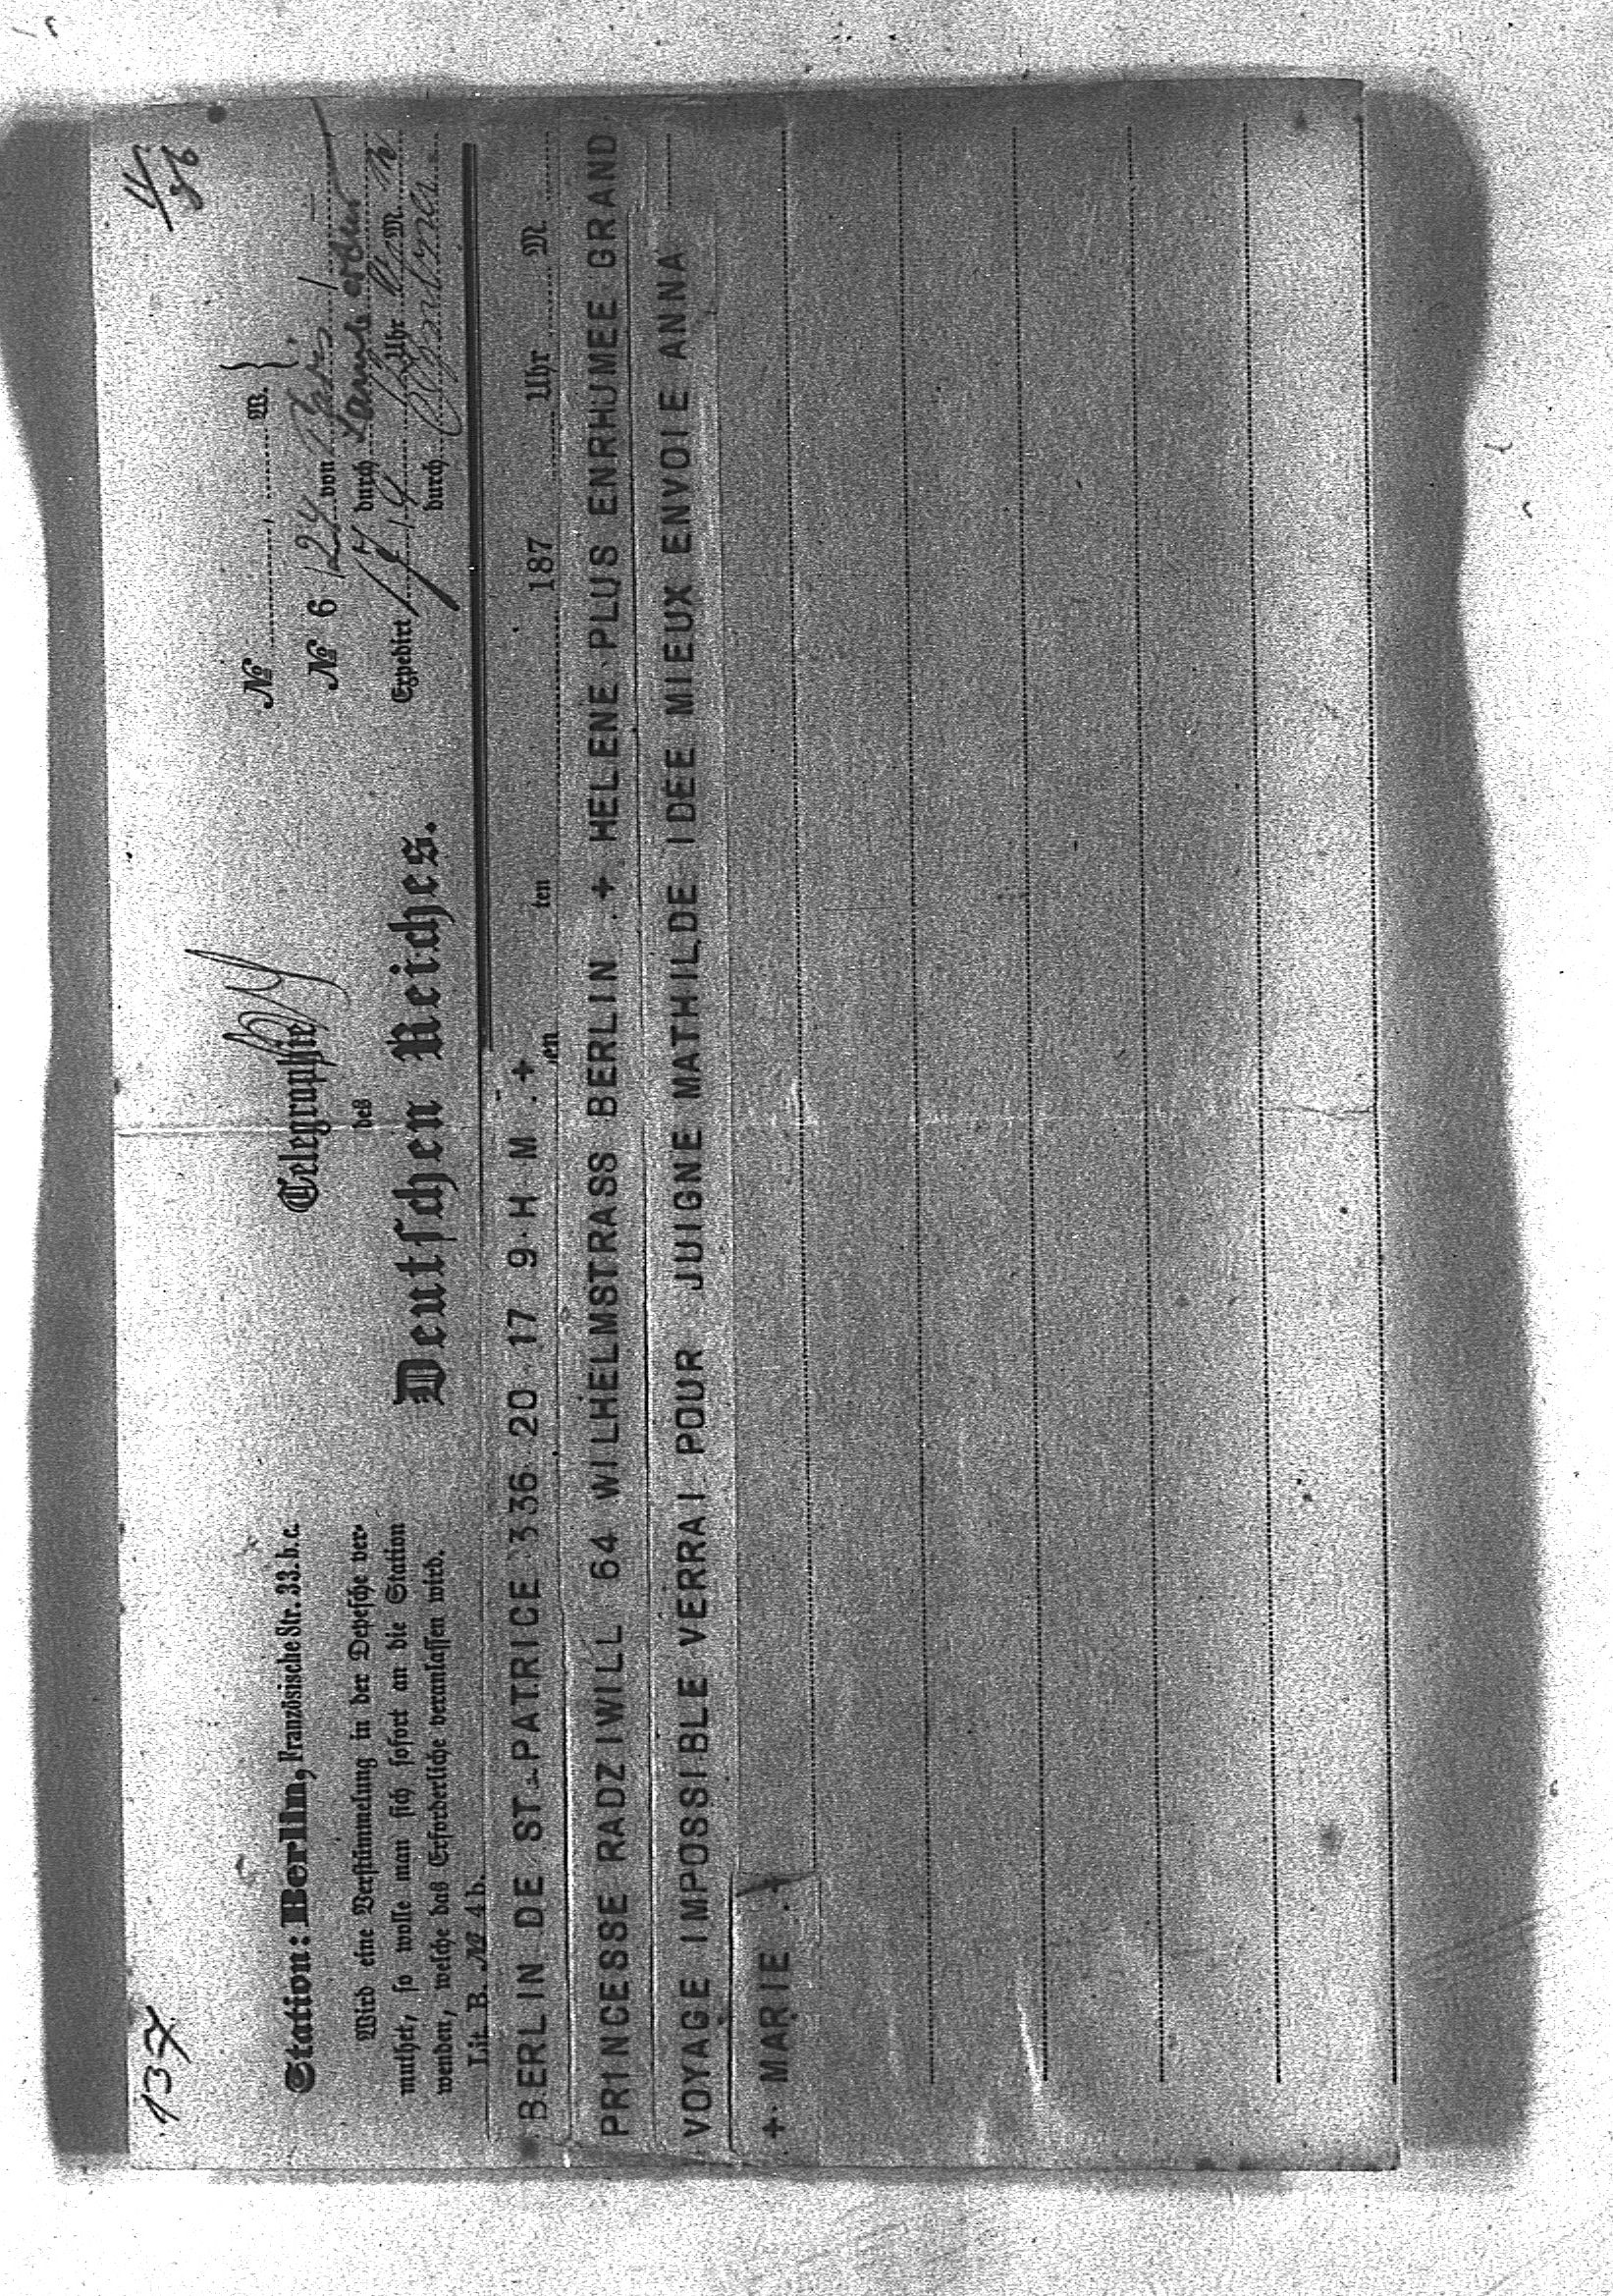 137
Station: Berlin, Französische Str. 33.b.c.
Wird eine Verstümmelung in der Depesche ver-
muthet, so wolle man sich sofort an die Station
wenden, welche das Erforderliche veranlassen wird.
Lit. B. № 4b.
Telegraphie
des
Deutschen Reiches.
№ M. }
№ 6 124 von
durch
Expedirt Uhr M.
durch
ten 187 Uhr M.
BERLIN DE ST-PATRICE 336 20 17 9 H M .+
PRINCESSE RADZIWILL 64 WILHELMSTRASS BERLIN .+ HELENE PLUS ENRHUMEE GRAND
VOYAGE IMPOSSIBLE VERRAI POUR JUIGNE MATHILDE IDEE MIEUX ENVOIE ANNA
+ MARIE .+